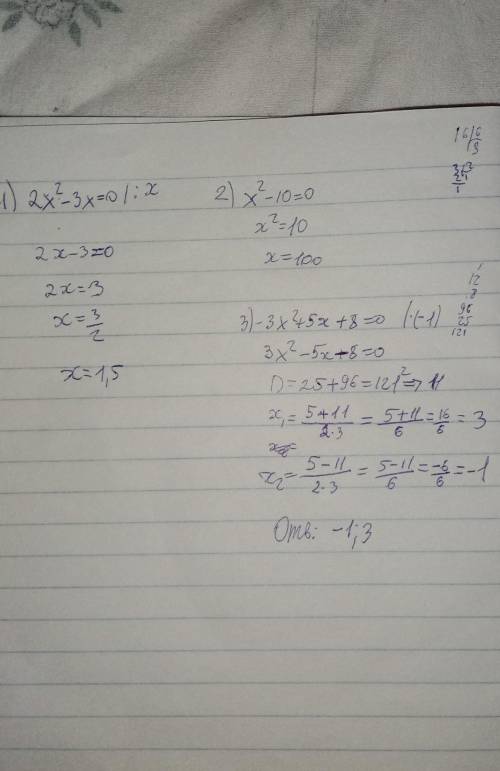 1) 2x²-3x=0 |:x
2x-3=0
2x=3
x=3/2
x=1,5
2) x²-10=0
x²=10
x=100
3) -3x²+5x+8=0 |·(-1)
3x²-5x-8=0
D=25+96=121² => 11
x₁=5+11/2·3=5+11/6=16/6=3
x₂=5-11/2·3=5-11/6=-6/6=-1
Отв: -1;3
12
8
96
25
121